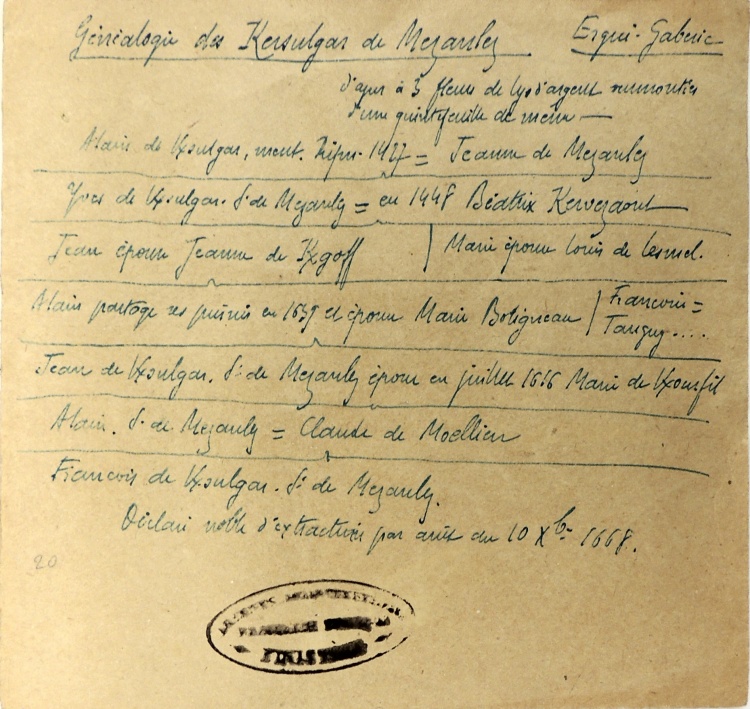 Généalogie des Kersulgar de Mezanlez Ergué-Gaberic
d'azur à 3 fleurs de lys d'argent surmontées
d'une quintefeuille de même —
Alain de Kxsulgar, ment. Réfor. 1427 = Jeanne de Mezanlez
Yves de Kxsulgar. Sr de Mezanlez = en 1448 Béatrix Kervezaont
Jean épouse Jeanne de Kxgoff | Marie épouse Louis de Lesmel.
Alain partage ses puinés en 1639 et épouse Marie Botigneau | Francoise =
Tanguy....
Jean de Kxsulgar. Sr de Mezanlez épouse en juillet 1616 Marie de
Alain. Sr de Mezanlez = Claude de Moellien
Francois de Kxsulgar. Sr de Mezanlez.
Déclaré noble d'extraction par arrêt du 10 Xbre 1668.
20
FINISTÈRE